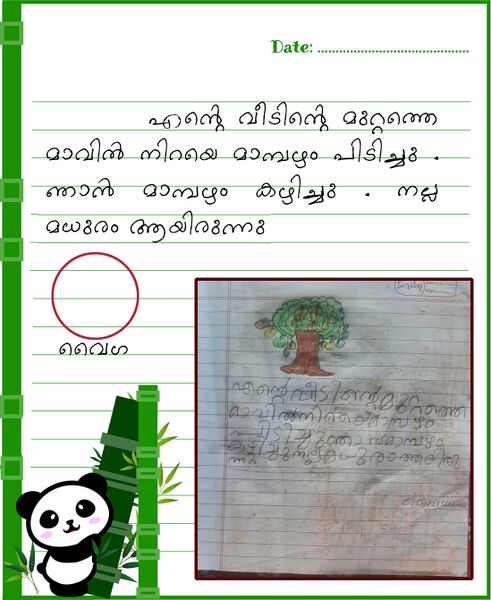 Date: ........................................
എന്റെ വീടിന്റെ മുറ്റത്തെ
മാവിൽ നിറയെ മാമ്പഴം പിടിച്ചു .
ഞാൻ മാമ്പഴം കഴിച്ചു . നല്ല
മധുരം ആയിരുന്നു
വൈഗ
എന്റെ വീടിന്റെ മുറ്റത്തെ
മാവിൽ നിറയെ മാമ്പഴം
പിടിച്ചു ഞാൻ മാമ്പഴം